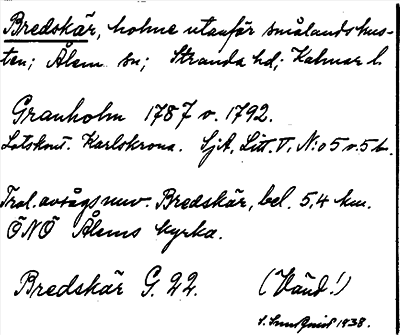 Bredskär, holme utanför smålandskus-
ten; Ålem sn; Stranda hd; Kalmar l.
Granholm 1787 o. 1792.
Lotskont. Karlskrona. Sjk. Litt. V, N:o 5 o. 5 b.
Tral. avsågs nuv. Bredskär, bel. 5,4 km.
ÖNÖ Ålems kyrka.
Bredskär G. 22. (Vänd!)
1938.